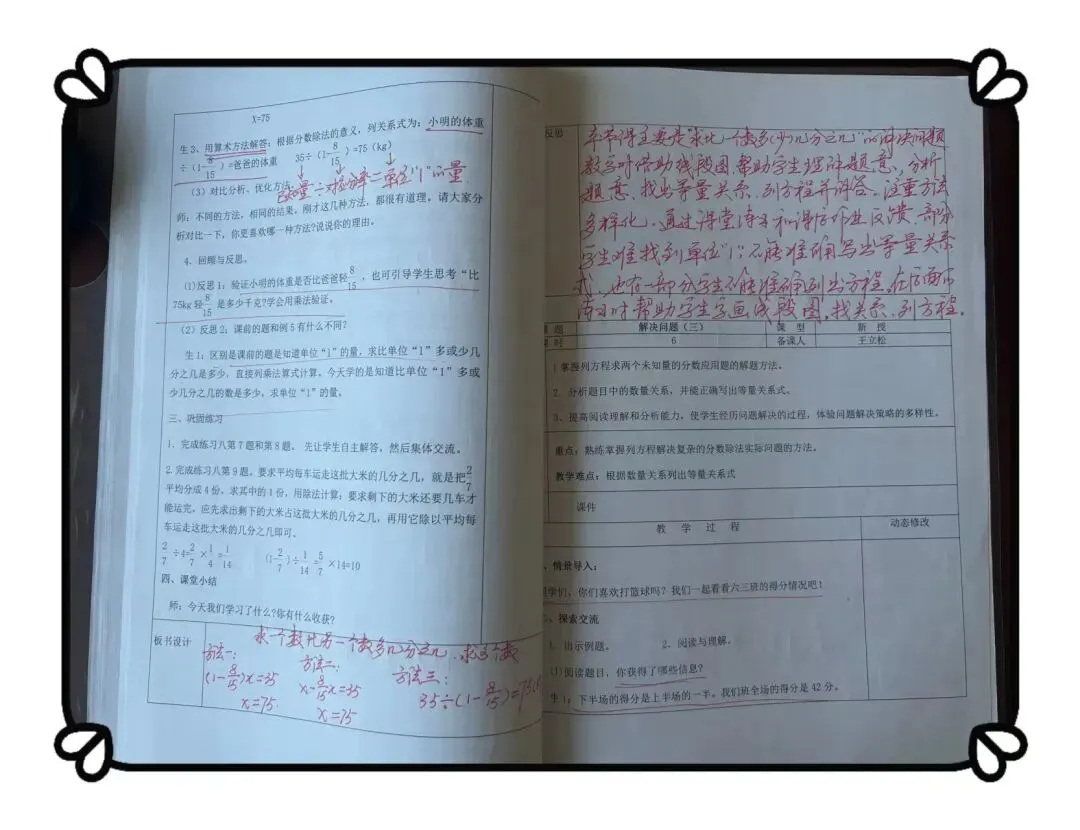 X=75
生3、用算术方法解答：根据分数除法的意义，列关系式为：小明的体重
÷（1-8/15）=爸爸的体重 35÷（1-8/15）=75（kg）
（3）对比分析，优化方法
已知量÷对应分率=单位"1"的量
师：不同的方法，相同的结果，刚才这几种方法，都很有道理，请大家分
析对比一下，你更喜欢哪一种方法?说说你的理由。
4．回顾与反思。
(1)反思1：验证小明的体重是否比爸爸轻8/15，也可引导学生思考“比
75kg轻8/15是多少千克?学会用乘法验证。
（2）反思2：课前的题和例5有什么不同?
生1：区别是课前的题是知道单位“1”的量，求比单位“1”多或少几
分之几是多少，直接列乘法算式计算。今天学的是知道比单位“1”多或
少几分之几的数是多少，求单位“1”的量。
三、巩固练习
1．完成练习八第7题和第8题。先让学生自主解答，然后集体交流。
2.完成练习八第9题。要求平均每车运走这批大米的几分之几，就是把2/7
平均分成4份，求其中的1份，用除法计算；要求剩下的大米还要几车才
能运完，应先求出剩下的大米占这批大米的几分之几，再用它除以平均每
车运走这批大米的几分之几即可。
2/7÷4=2/7×1/4=1/14 （1-2/7）÷1/14=5/7×14=10
四、课堂小结
师：今天我们学习了什么?你有什么收获?
板书设计
求一个数比另一个数多几分之几，求这个数
方法一： 方法二： 方法三：
(1-8/15)x=35 x-8/15x=35 35÷(1-8/15)=75
x=75 x=75
反思
本节课主要是“求比一个数多(少)几分之几”的解决问题
教学时借助线段图帮助学生理解题意，分析
题意，找出等量关系，列方程并解答。注重方法
多样化，通过课堂练习和课后作业反馈，部分
学生难找到单位“1”；不能准确写出等量关系
式，也有一部分学生不能准确列出方程，在后面
练习时帮助学生学画线段图，找关系，列方程。
课 题 解决问题（三） 课 型 新 授
课 时 6 备课人 王立松
1掌握列方程求两个未知量的分数应用题的解题方法。
2．分析题目中的数量关系，并能正确写出等量关系式。
3、提高阅读理解和分析能力，使学生经历问题解决的过程，体验问题解决策略的多样性。
重点：熟练掌握列方程解决复杂的分数除法实际问题的方法。
教学难点：根据数量关系列出等量关系式
课件
教 学 过 程 动态修改
、情景导入：
同学们，你们喜欢打篮球吗？我们一起看看六三班的得分情况吧！
、探索交流
1．出示例题。 2．阅读与理解。
(1)阅读题目，你获得了哪些信息?
生1：下半场的得分是上半场的一半。我们班全场的得分是42分。